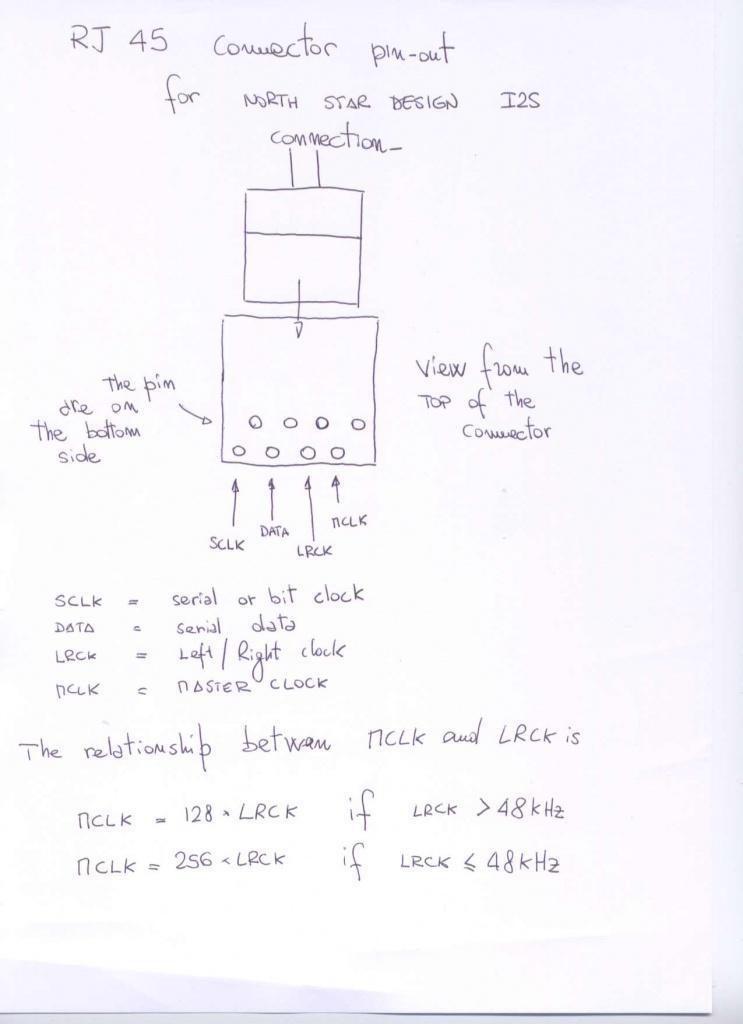 RJ 45 connector pin-out
for NORTH STAR DESIGN I2S
connection_
The pin
are on
the bottom
side
View from the
TOP of the
connector
SCLK
DATA
LRCK
MCLK
SCLK = serial or bit clock
DATA = serial data
LRCK = Left / Right clock
MCLK = MASTER CLOCK
The relationship between MCLK and LRCK is
MCLK = 128 × LRCK if LRCK > 48kHz
MCLK = 256 × LRCK if LRCK ≤ 48kHz